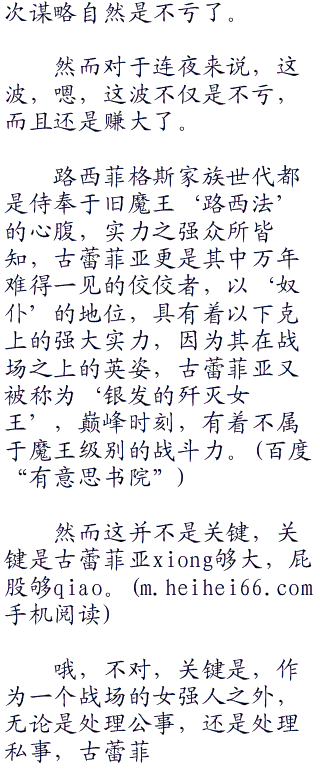 次谋略自然是不亏了。
然而对于连夜来说，这
波，嗯，这波不仅是不亏，
而且还是赚大了。
路西菲格斯家族世代都
是侍奉于旧魔王‘路西法’
的心腹，实力之强众所皆
知，古蕾菲亚更是其中万年
难得一见的佼佼者，以‘奴
仆’的地位，具有着以下克
上的强大实力，因为其在战
场之上的英姿，古蕾菲亚又
被称为‘银发的歼灭女
王’，巅峰时刻，有着不属
于魔王级别的战斗力。(百度
“有意思书院”)
然而这并不是关键，关
键是古蕾菲亚xiong够大，屁
股够qiao。(m.heihei66.com
手机阅读)
哦，不对，关键是，作
为一个战场的女强人之外，
无论是处理公事，还是处理
私事，古蕾菲